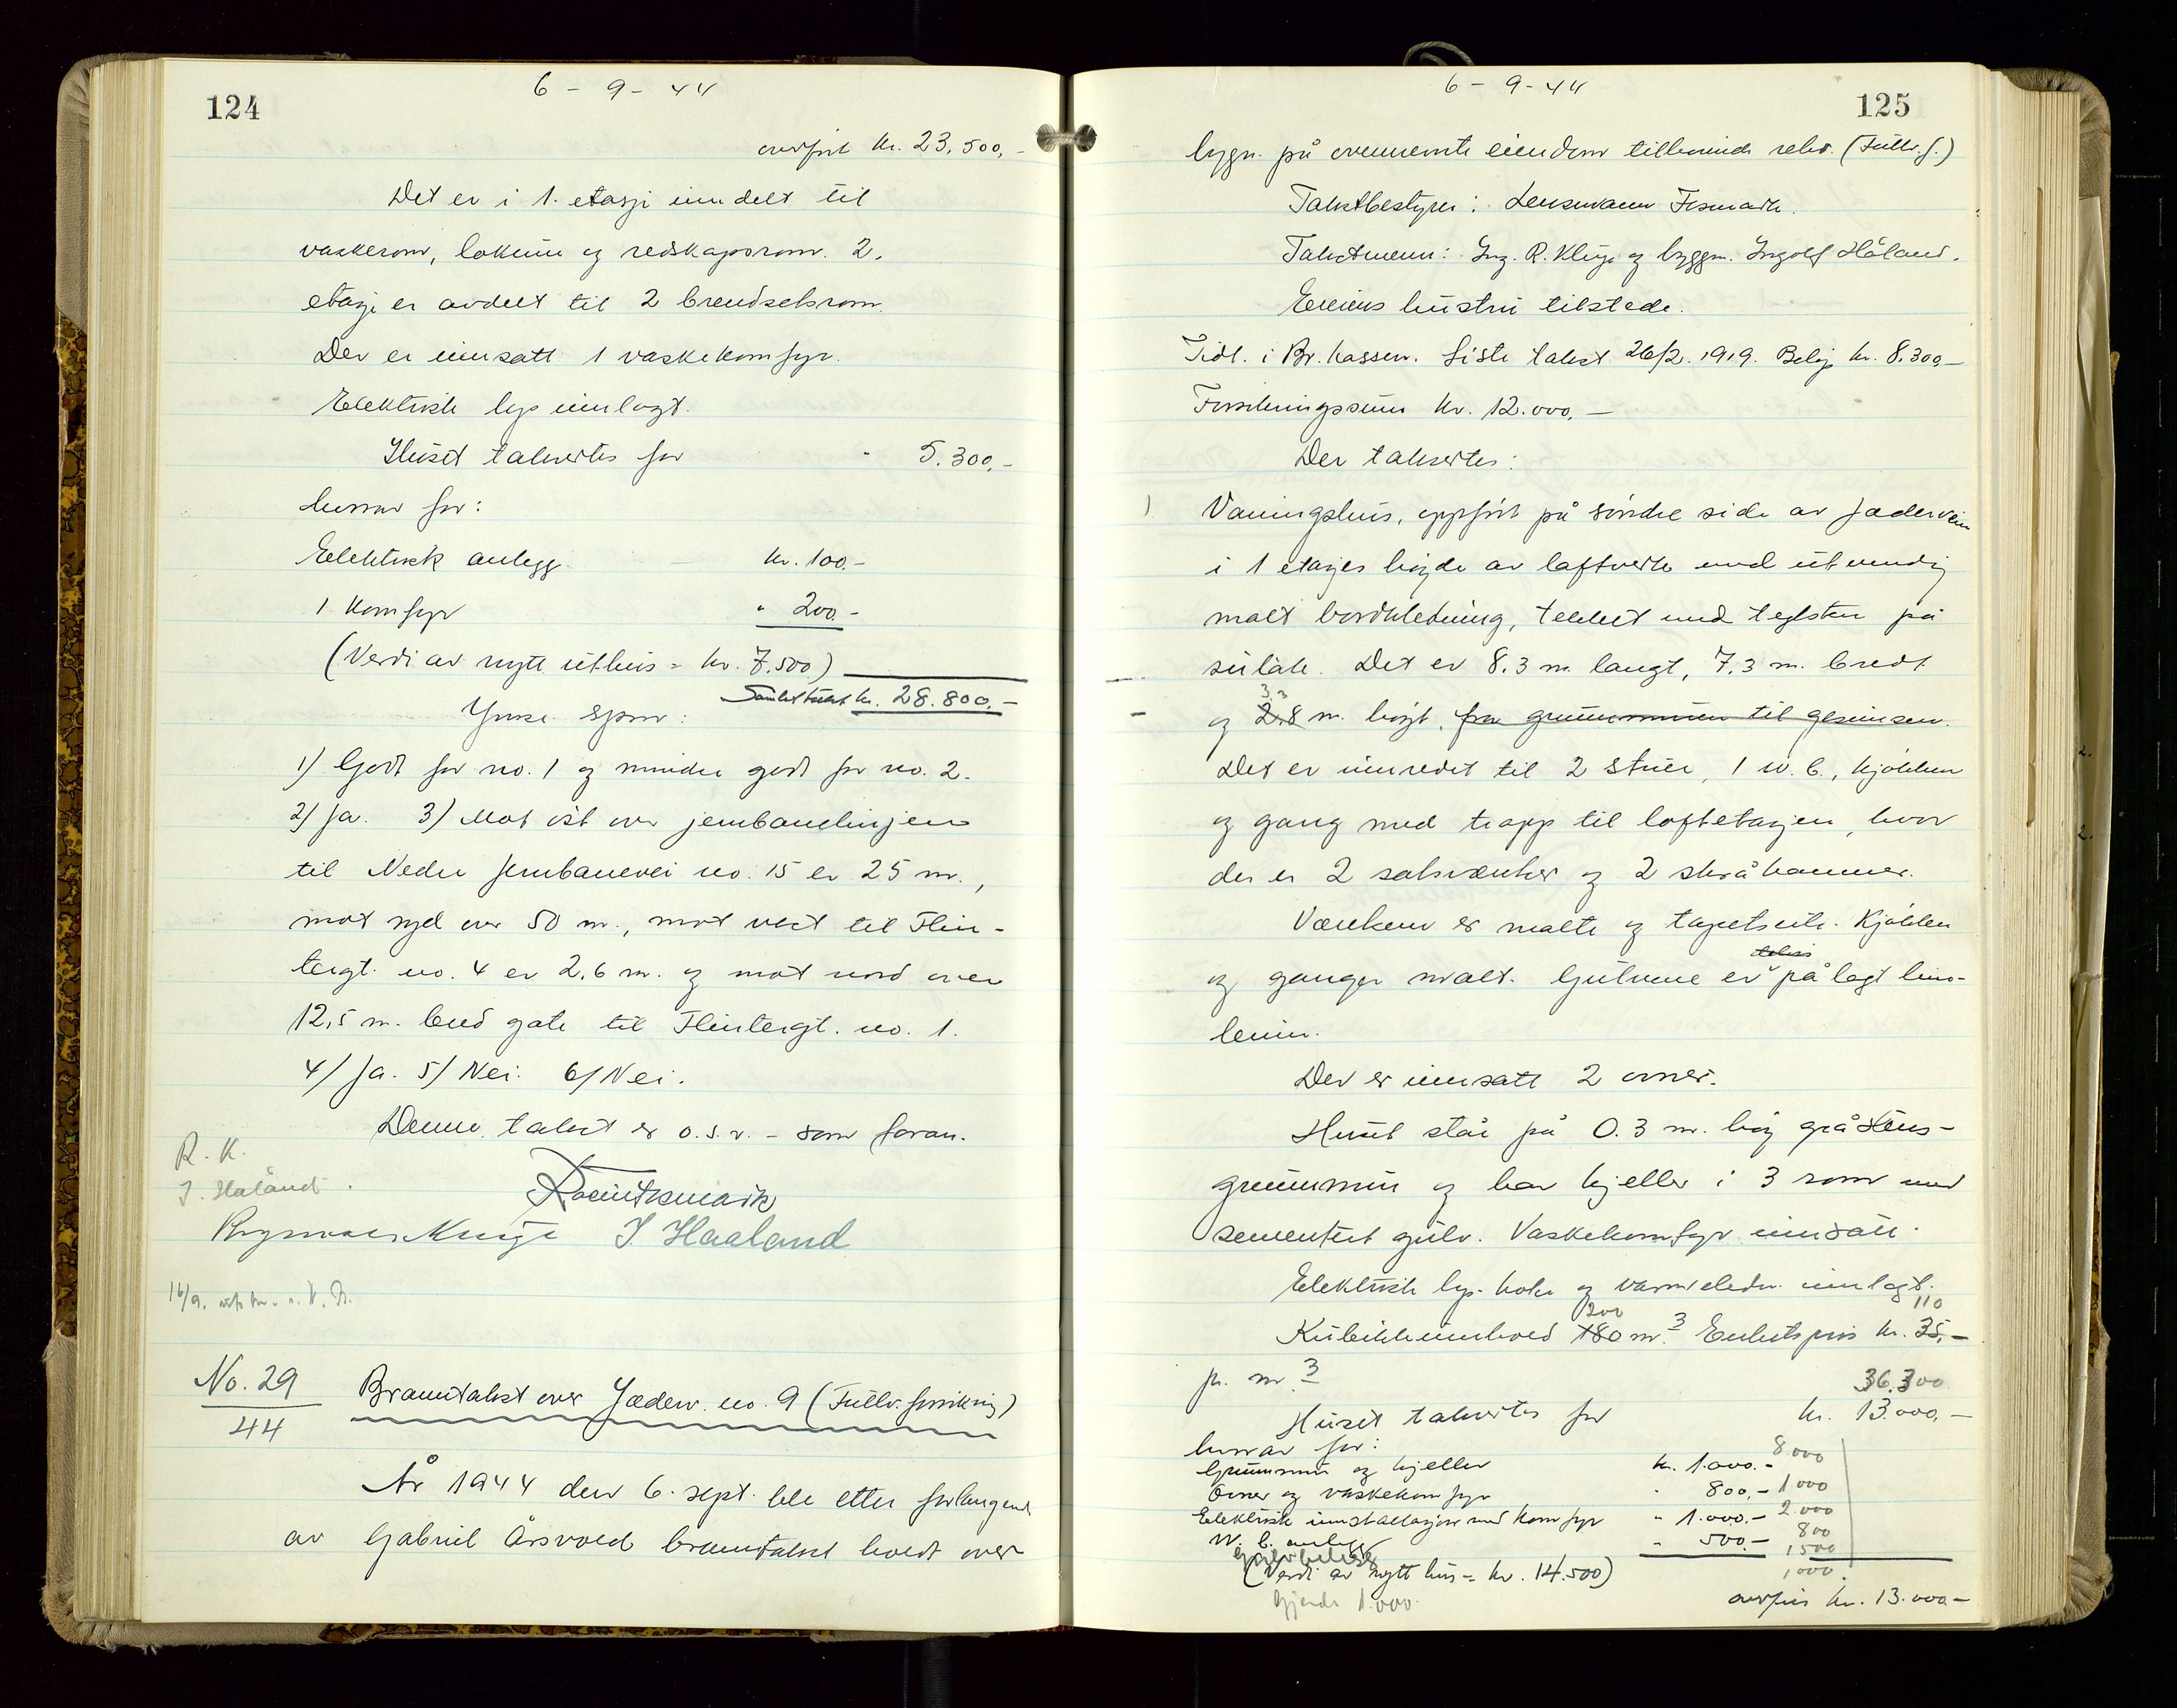 124
6 - 9 - 44
overført kr. 23.500,-
Det er i 1. etasje inndelt til
vaskerom, lokum og redskapsrom. 2.
etasje er avdelt til 2 brendselsrom.
Der er innsatt 1 vaskekomfyr.
Elektrisk lys innlagt.
Huset takseres for " 5.300,-
hvorav for:
Elektrisk anlegg kr. 100.-
1 Komfyr " 200.-
(Verdi av nytt uthus = kr. 7.500)
Samlet takst kr. 28.800.-
Ymse spm:
1) Godt for no. 1 og mindre godt for no. 2.
2) Ja. 3) Mot øst over jernbanelinjen
til Nedre Jernbanevei no. 15 er 25 m.,
mot syd over 50 m., mot vest til Flin-
tergt. no. 4 er 2.6 m. og mot nord over
12,5 m. bred gate til Flintergt. no. 1.
4) Ja. 5) Nei. 6) Nei.
Denne takst er o.s.v. - som foran.
R. K.
I. Haaland.
I. Haaland
16/9.
No. 29
44
Branntakst over Jæderv. no. 9 (Fullv. forsikring)
År 1944 den 6. sept. ble etter forlangende
av Gabriel Årsvoll branntakst holdt over
6 - 9 - 44
125
bygn. på ovennevnte eiendom tilhørende rekv. (Fullv. f.)
Takstbestyrer: Lensmann Tesmark.
Takstmenn: Ing. R. Kluge og byggm. Ingolf Håland.
Eierens hustru tilstede.
Tidl. i Br. kassen. Siste takst 26/2. 1919. Beløp kr. 8.300,-
Forsikringssum kr. 12.000,-
Der takseres:
1 Våningshus, oppført på søndre side av Jæderveien
i 1 etasjes høyde av lafteverk med utvendig
malt bordkledning, tekket med teglsten på
sulåte. Det er 8.3 m. langt, 7.3 m. bredt
3.3
og 2.8 m. høyt, fra grunnmuren til gesimsen.
Det er innredet til 2 stuer, 1 w. c., kjøkken
og gang med trapp til loftetasjen, hvor
der er 2 kvistværelser og 2 skråkammer.
Værelsene er malte og tapetserte. Kjøkken
og ganger malt. Gulvene er pålagt lino-
leum.
Der er innsatt 2 ovner.
Huset står på 0.3 m. høy gråstens-
grunnmur og har kjeller i 3 rom med
sementert gulv. Vaskekomfyr innsatt.
Elektrisk lys- koke og varmeledn. innlagt.
200 110
Kubikkinnhold 180 m.3 Enhetspris kr. 35,-
pr. m.3
36.300
Huset takseres for kr. 13.000,-
hvorav for:
Grunnmur og kjeller kr. 1.000.- 8.000
Ovner og vaskekomfyr " 800,- 1000
Elektrisk innstallasjon med komfyr " 1.000,- 2.000
W. C. anlegg " 500.- 800
1500
(Verdi av nytt hus = kr. 14.500) 1000
Gjerde 1.000
overføres kr. 13.000,-